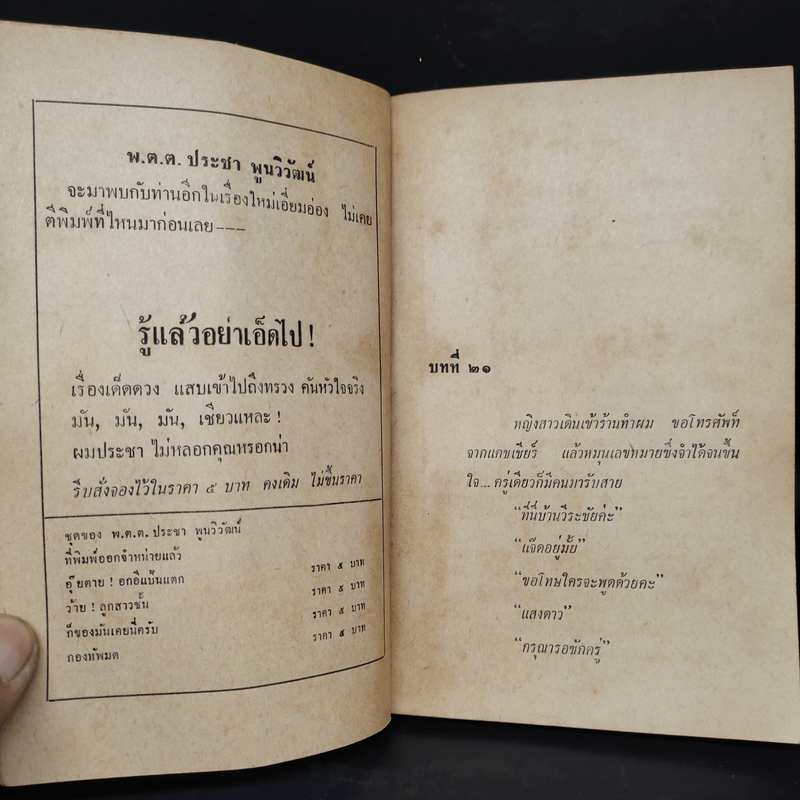 พ.ต.ต. ประชา พูนวิวัฒน์
จะมาพบกับท่านอีกในเรื่องใหม่เอี่ยมอ่อง ไม่เคย
ตีพิมพ์ที่ไหนมาก่อนเลย ---
รู้แล้วอย่าเอ็ดไป !
เรื่องเด็ดดวง แสบเข้าไปถึงทรวง คันหัวใจจริง
มัน, มัน, มัน, เชียวแหละ !
ผมประชา ไม่หลอกคุณหรอกน่า
รีบสั่งจองไว้ในราคา ๕ บาท คงเดิม ไม่ขึ้นราคา
ชุดของ พ.ต.ต. ประชา พูนวิวัฒน์
ที่พิมพ์ออกจำหน่ายแล้ว
อุ๊ยตาย ! อกอีแป้นแตก ราคา ๕ บาท
ว้าย ! ลูกสาวชั้น ราคา ๕ บาท
ก็ของมันเคยนี่ครับ ราคา ๕ บาท
กองทัพมด ราคา ๕ บาท
บทที่ ๒๑
หญิงสาวเดินเข้าร้านทำผม ขอโทรศัพท์
จากแคชเชียร์ แล้วหมุนเลขหมายซึ่งจำได้จนขึ้น
ใจ... ครู่เดียวก็มีคนมารับสาย
“ที่นี่บ้านวีระชัยค่ะ”
“แจ๊ดอยู่มั้ย”
“ขอโทษใครจะพูดด้วยคะ”
“แสงดาว”
“กรุณารอซักครู่”